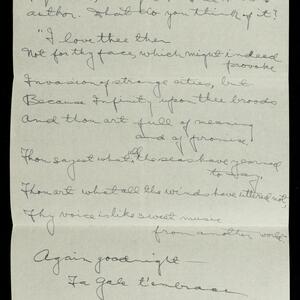 author. What do you think of it?
"I love thee then
Not for thy face, which might indeed
provoke
Invasion of strange cities, but
Because Infinity upon thee broods
And thou art full of meaning
and of promise.
Thou sayest what all the seas have yearned
to say,
Thou art what all the winds have uttered not,
Thy voice is like sweet music
from another world."
Again goodnight—
Ta Gale t'embrasse